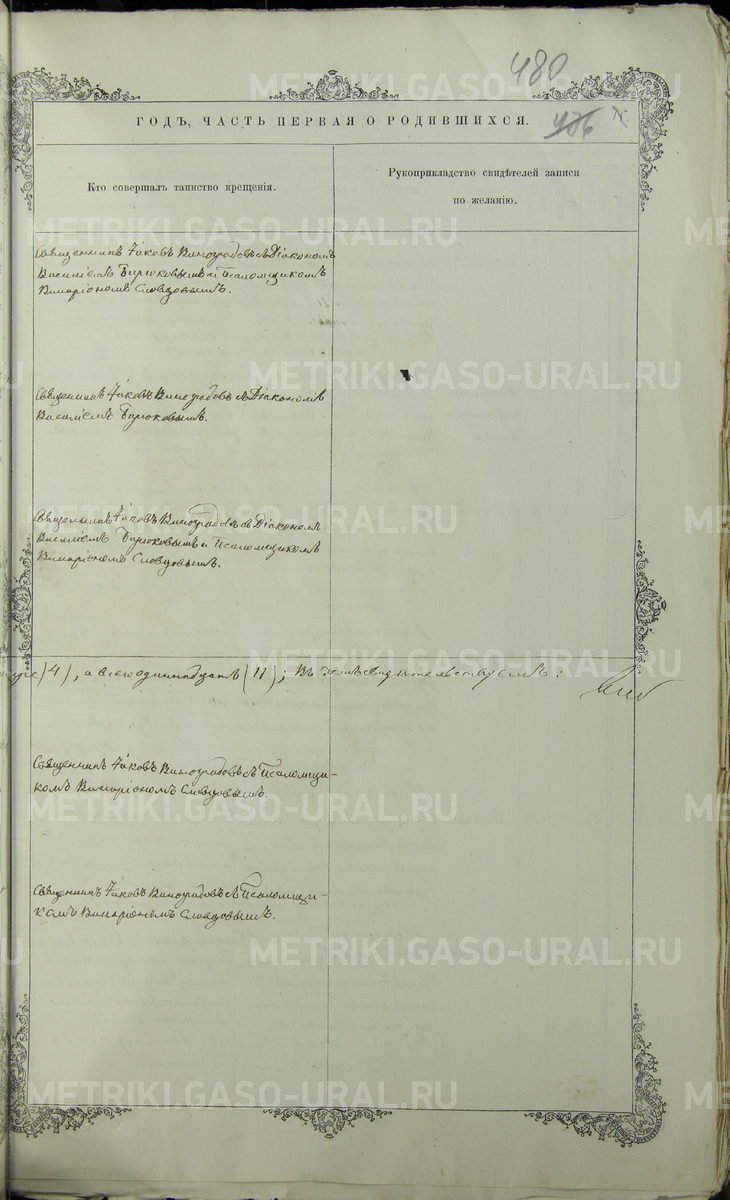 480
ГОДЪ, ЧАСТЬ ПЕРВАЯ О РОДИВШИХСЯ.
Кто совершалъ таинство крещенія.
Рукоприкладство свидѣтелей записи
по желанію.
Священникъ Іаковъ Виноградовъ съ Діакономъ
Василіемъ Бирюковымъ и Псаломщикомъ
Иларіономъ Словцовымъ.
Священникъ Іаковъ Виноградовъ съ Діакономъ
Василіемъ Бирюковымъ.
Священникъ Іаковъ Виноградовъ съ Діакономъ
Василіемъ Бирюковымъ и Псаломщикомъ
Иларіономъ Словцовымъ.
(4), а всего одиннадцать (11); въ чемъ свидѣтельствуемъ:
Священникъ Іаковъ Виноградовъ съ Псаломщи-
комъ Иларіономъ Словцовымъ.
Священникъ Іаковъ Виноградовъ съ Псаломщи-
комъ Иларіономъ Словцовымъ.
METRIKI.GASO-URAL.RU